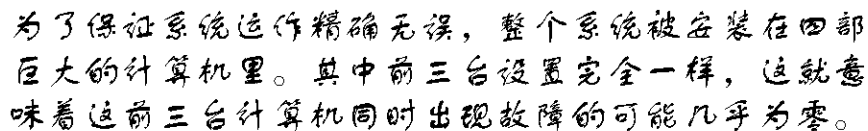 为了保证系统运作精确无误，整个系统被安装在四部
巨大的计算机里。其中前三台设置完全一样，这就意
味着这前三台计算机同时出现故障的可能几乎为零。